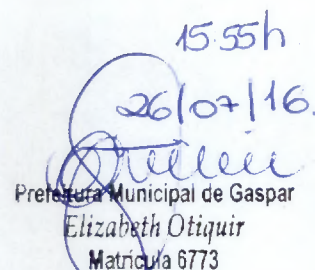 15:55h
26/07/16.
Prefeitura Municipal de Gaspar
Elizabeth Otiquir
Matrícula 6773